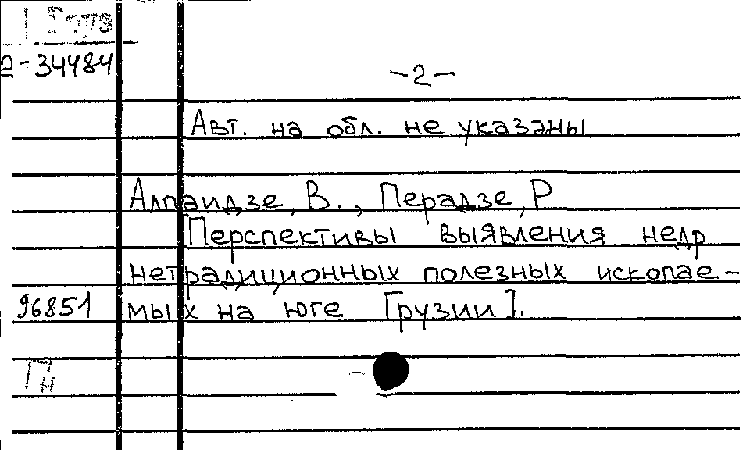 -34484
-2-
Авт. на обл. не указаны
Алпаидзе, В., Перадзе, Р
Перспективы выявления недр
нетрадиционных полезных ископае-
96851 мых на юге [Грузии].
Гн